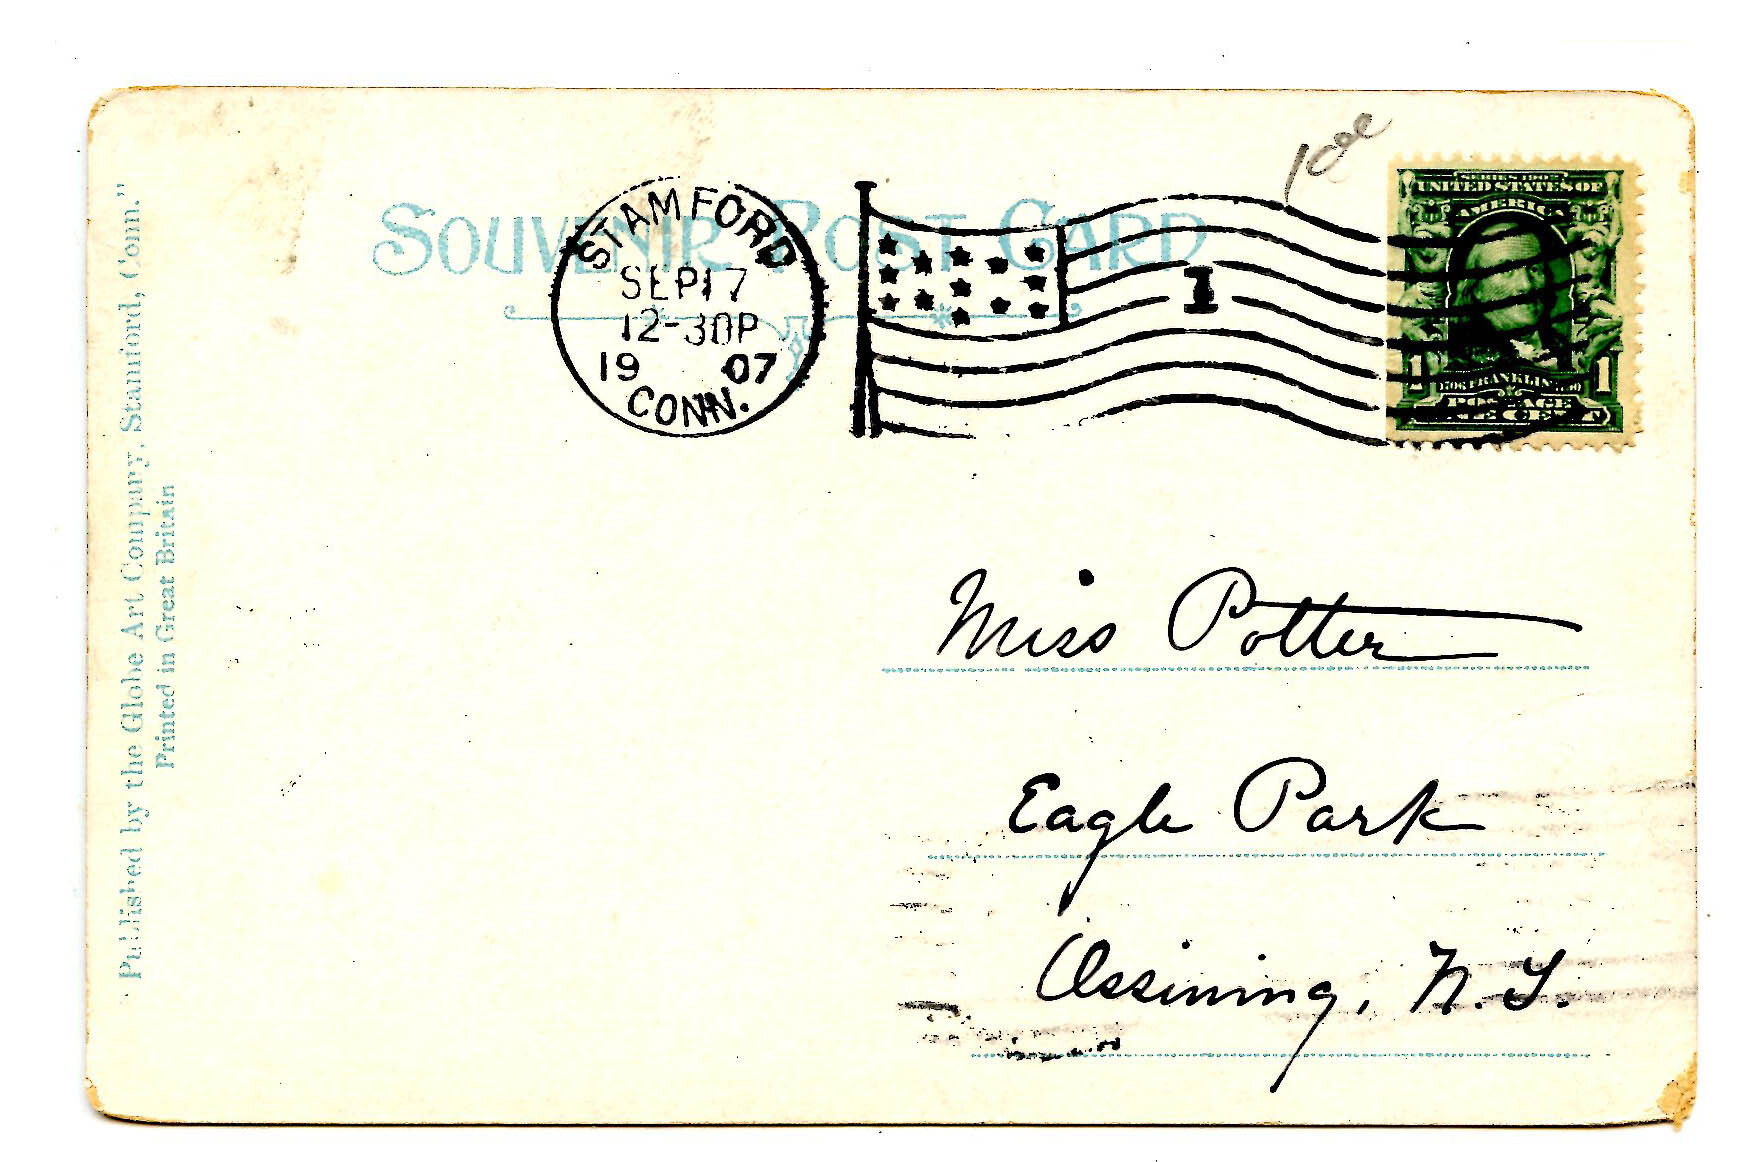 SOUVENIR POST CARD
STAMFORD
SEP 17
12-30P
1907
CONN.
1
SERIES 1902
UNITED STATES OF
AMERICA
1 FRANKLIN 1
POSTAGE
ONE CENT
Published by the Globe Art Company, Stamford, Conn."
Printed in Great Britain
Miss Potter
Eagle Park
Ossining, N.Y.